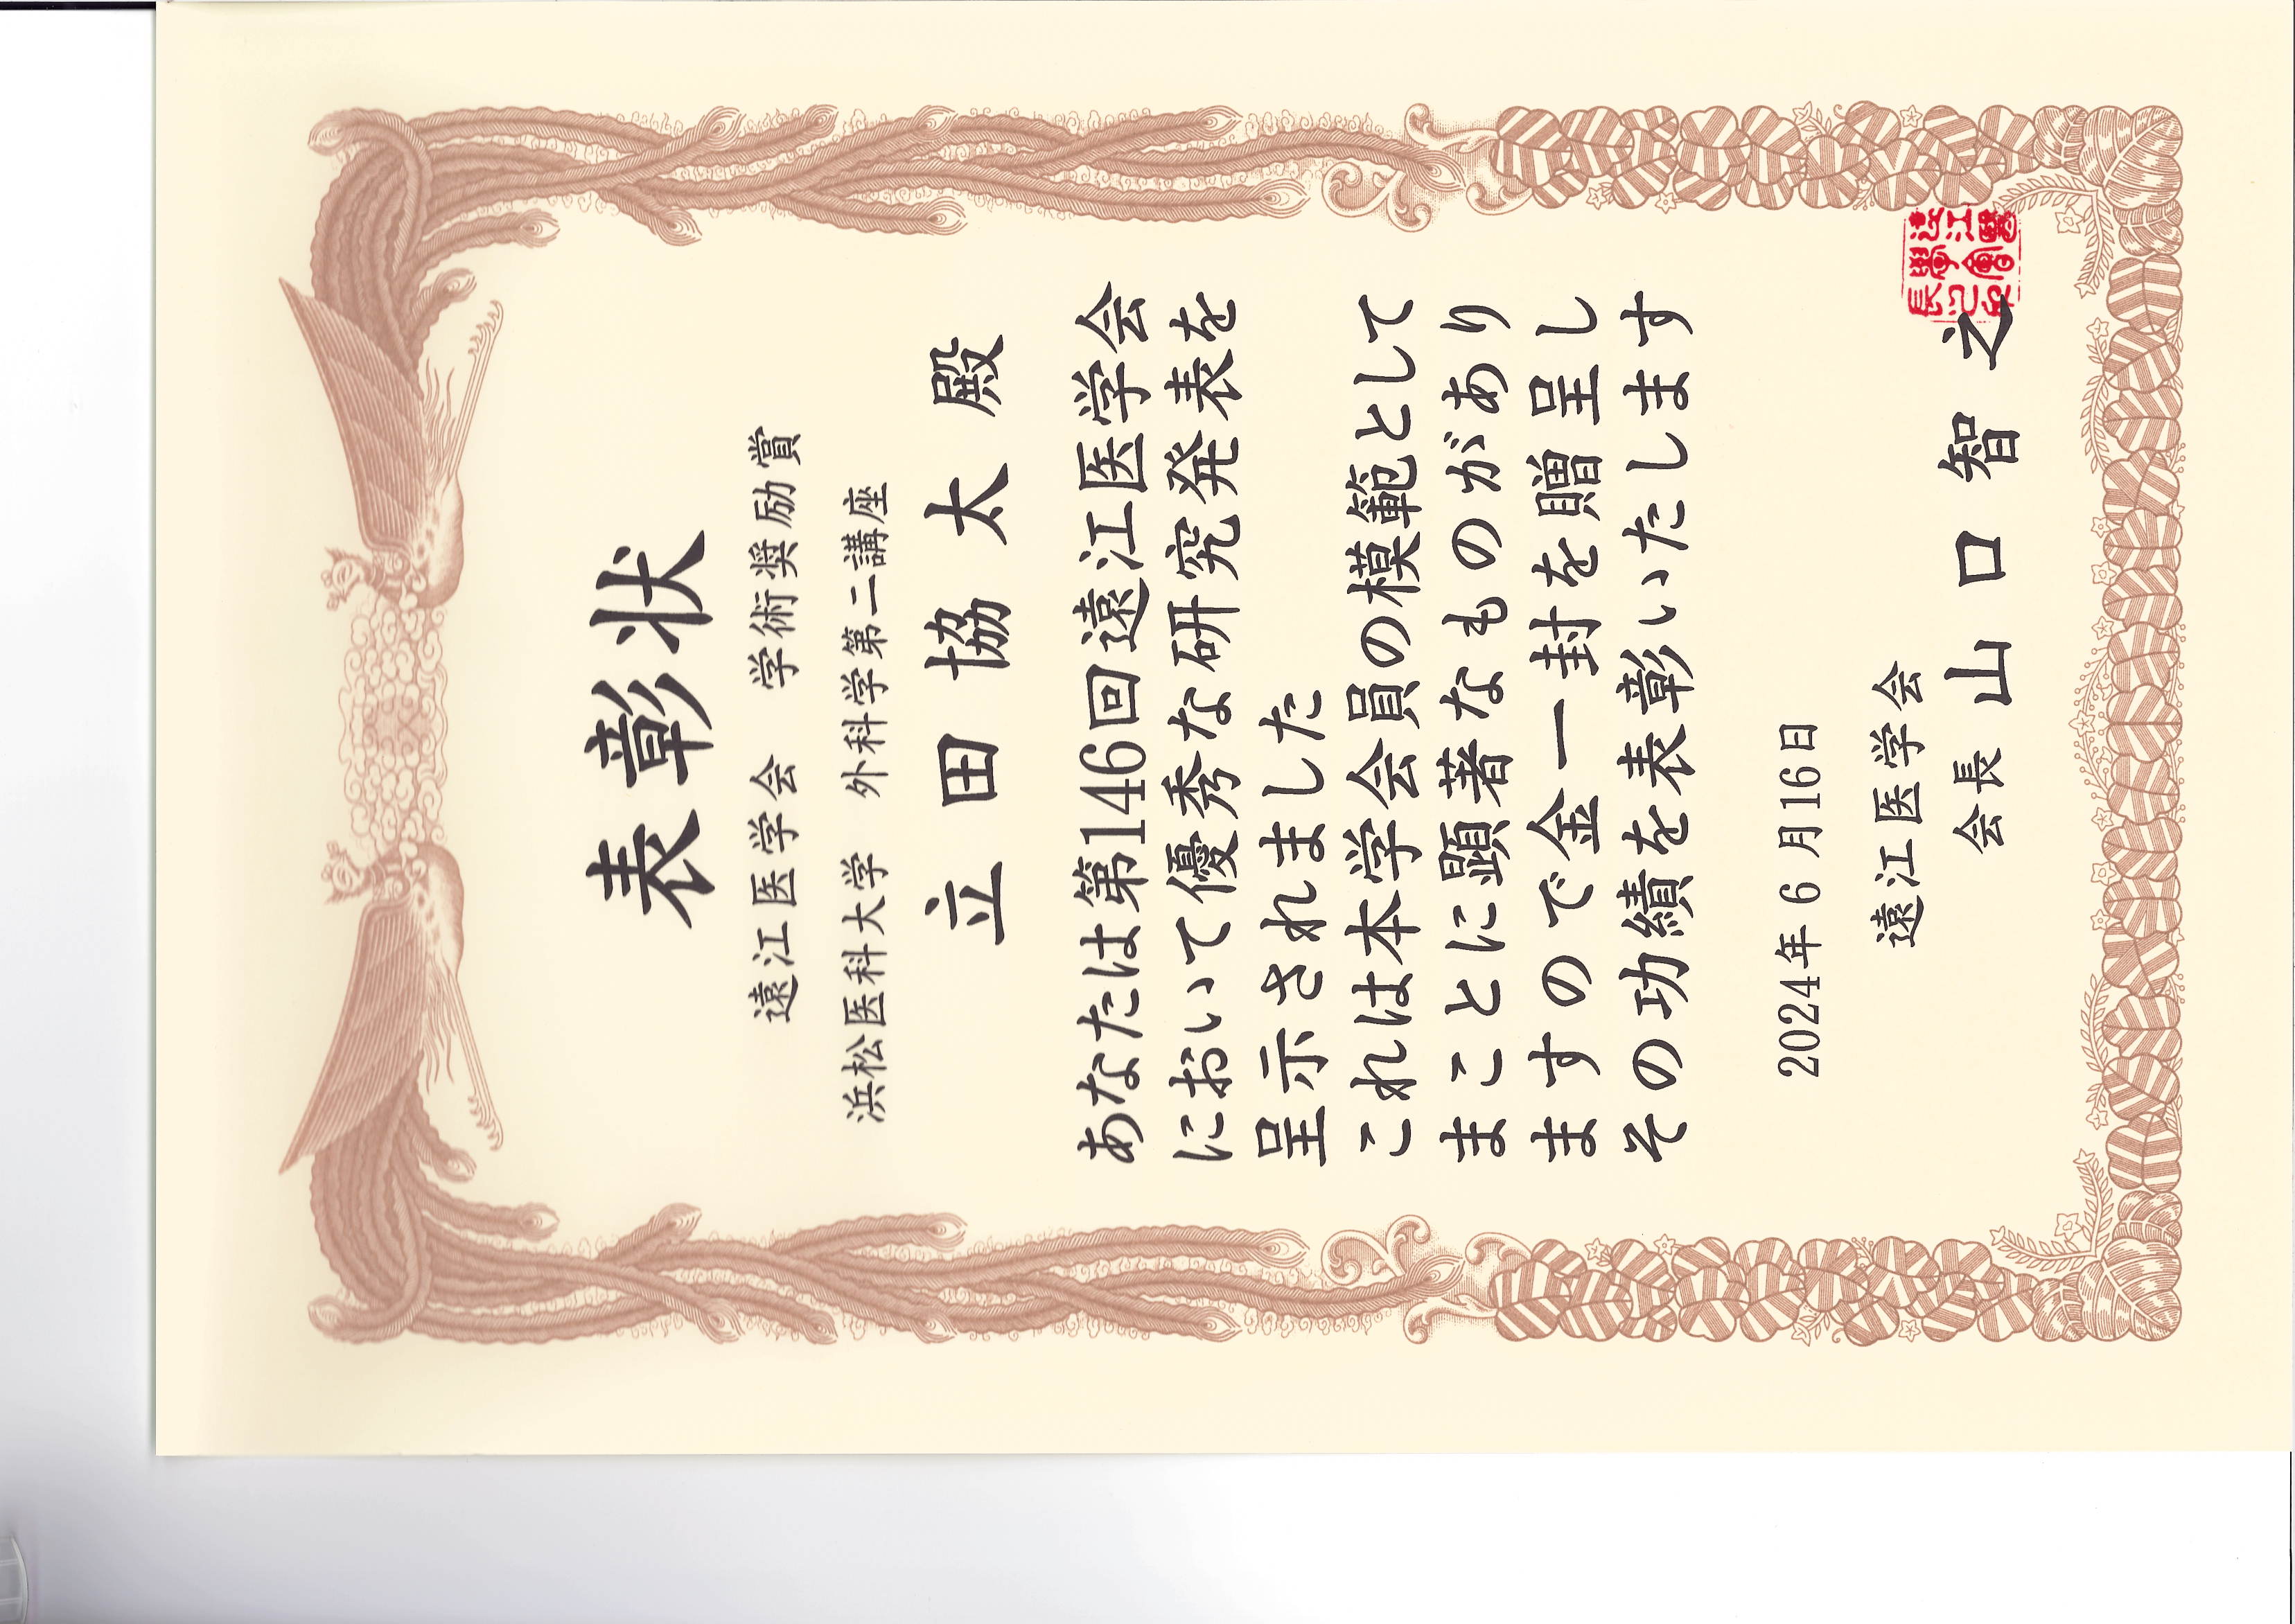 表彰状
遠江医学会 学術奨励賞
浜松医科大学 外科学第二講座
立田協太殿
あなたは第146回遠江医学会
において優秀な研究発表を
呈示されました
これは本学会員の模範として
まことに顕著なものがあり
ますので金一封を贈呈し
その功績を表彰いたします
2024年6月16日
遠江医学会
会長 山口智之
遠江醫
學會之
長印